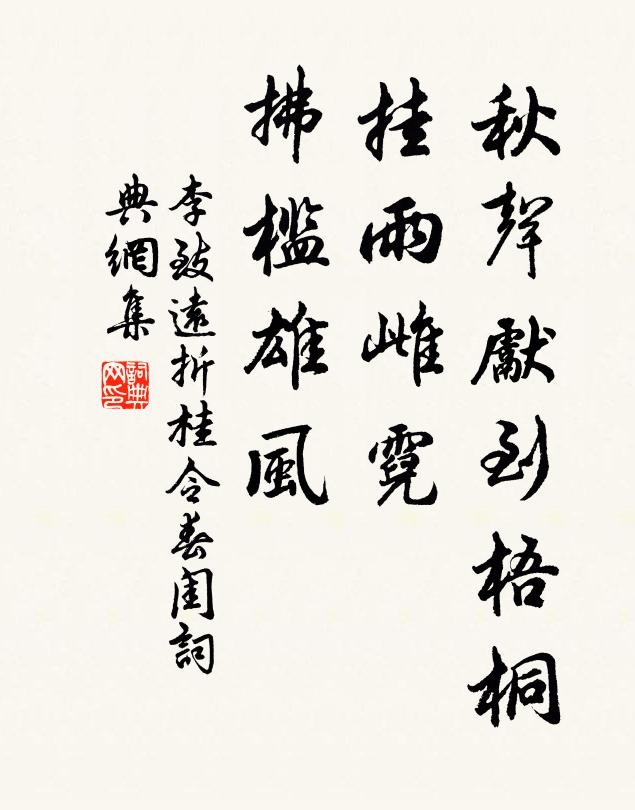 秋聲獻到梧桐
挂雨雌霓
拂檻雄風
李致遠折桂令春閨詞
典網集
詞典网印